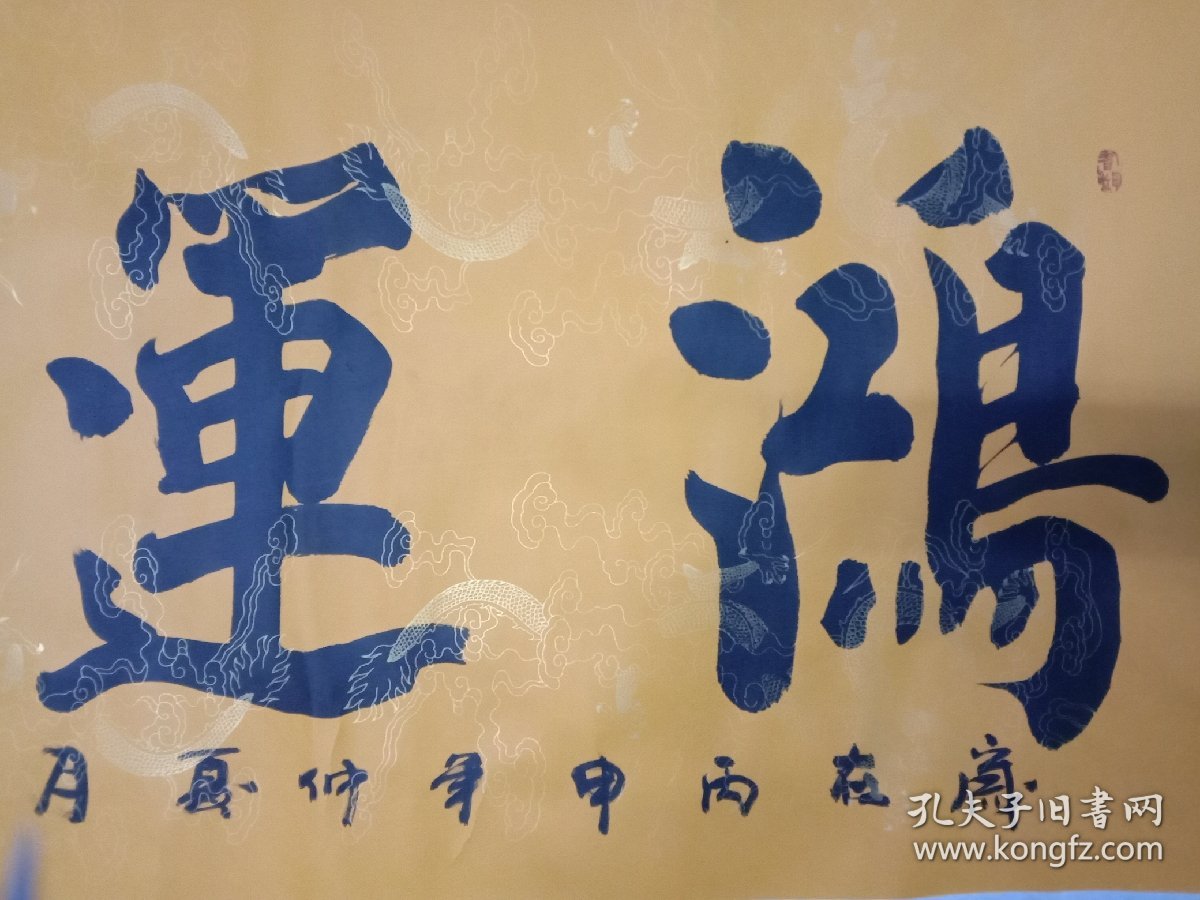 鴻運
歲在丙申年仲夏月
孔夫子旧書网
www.kongfz.com